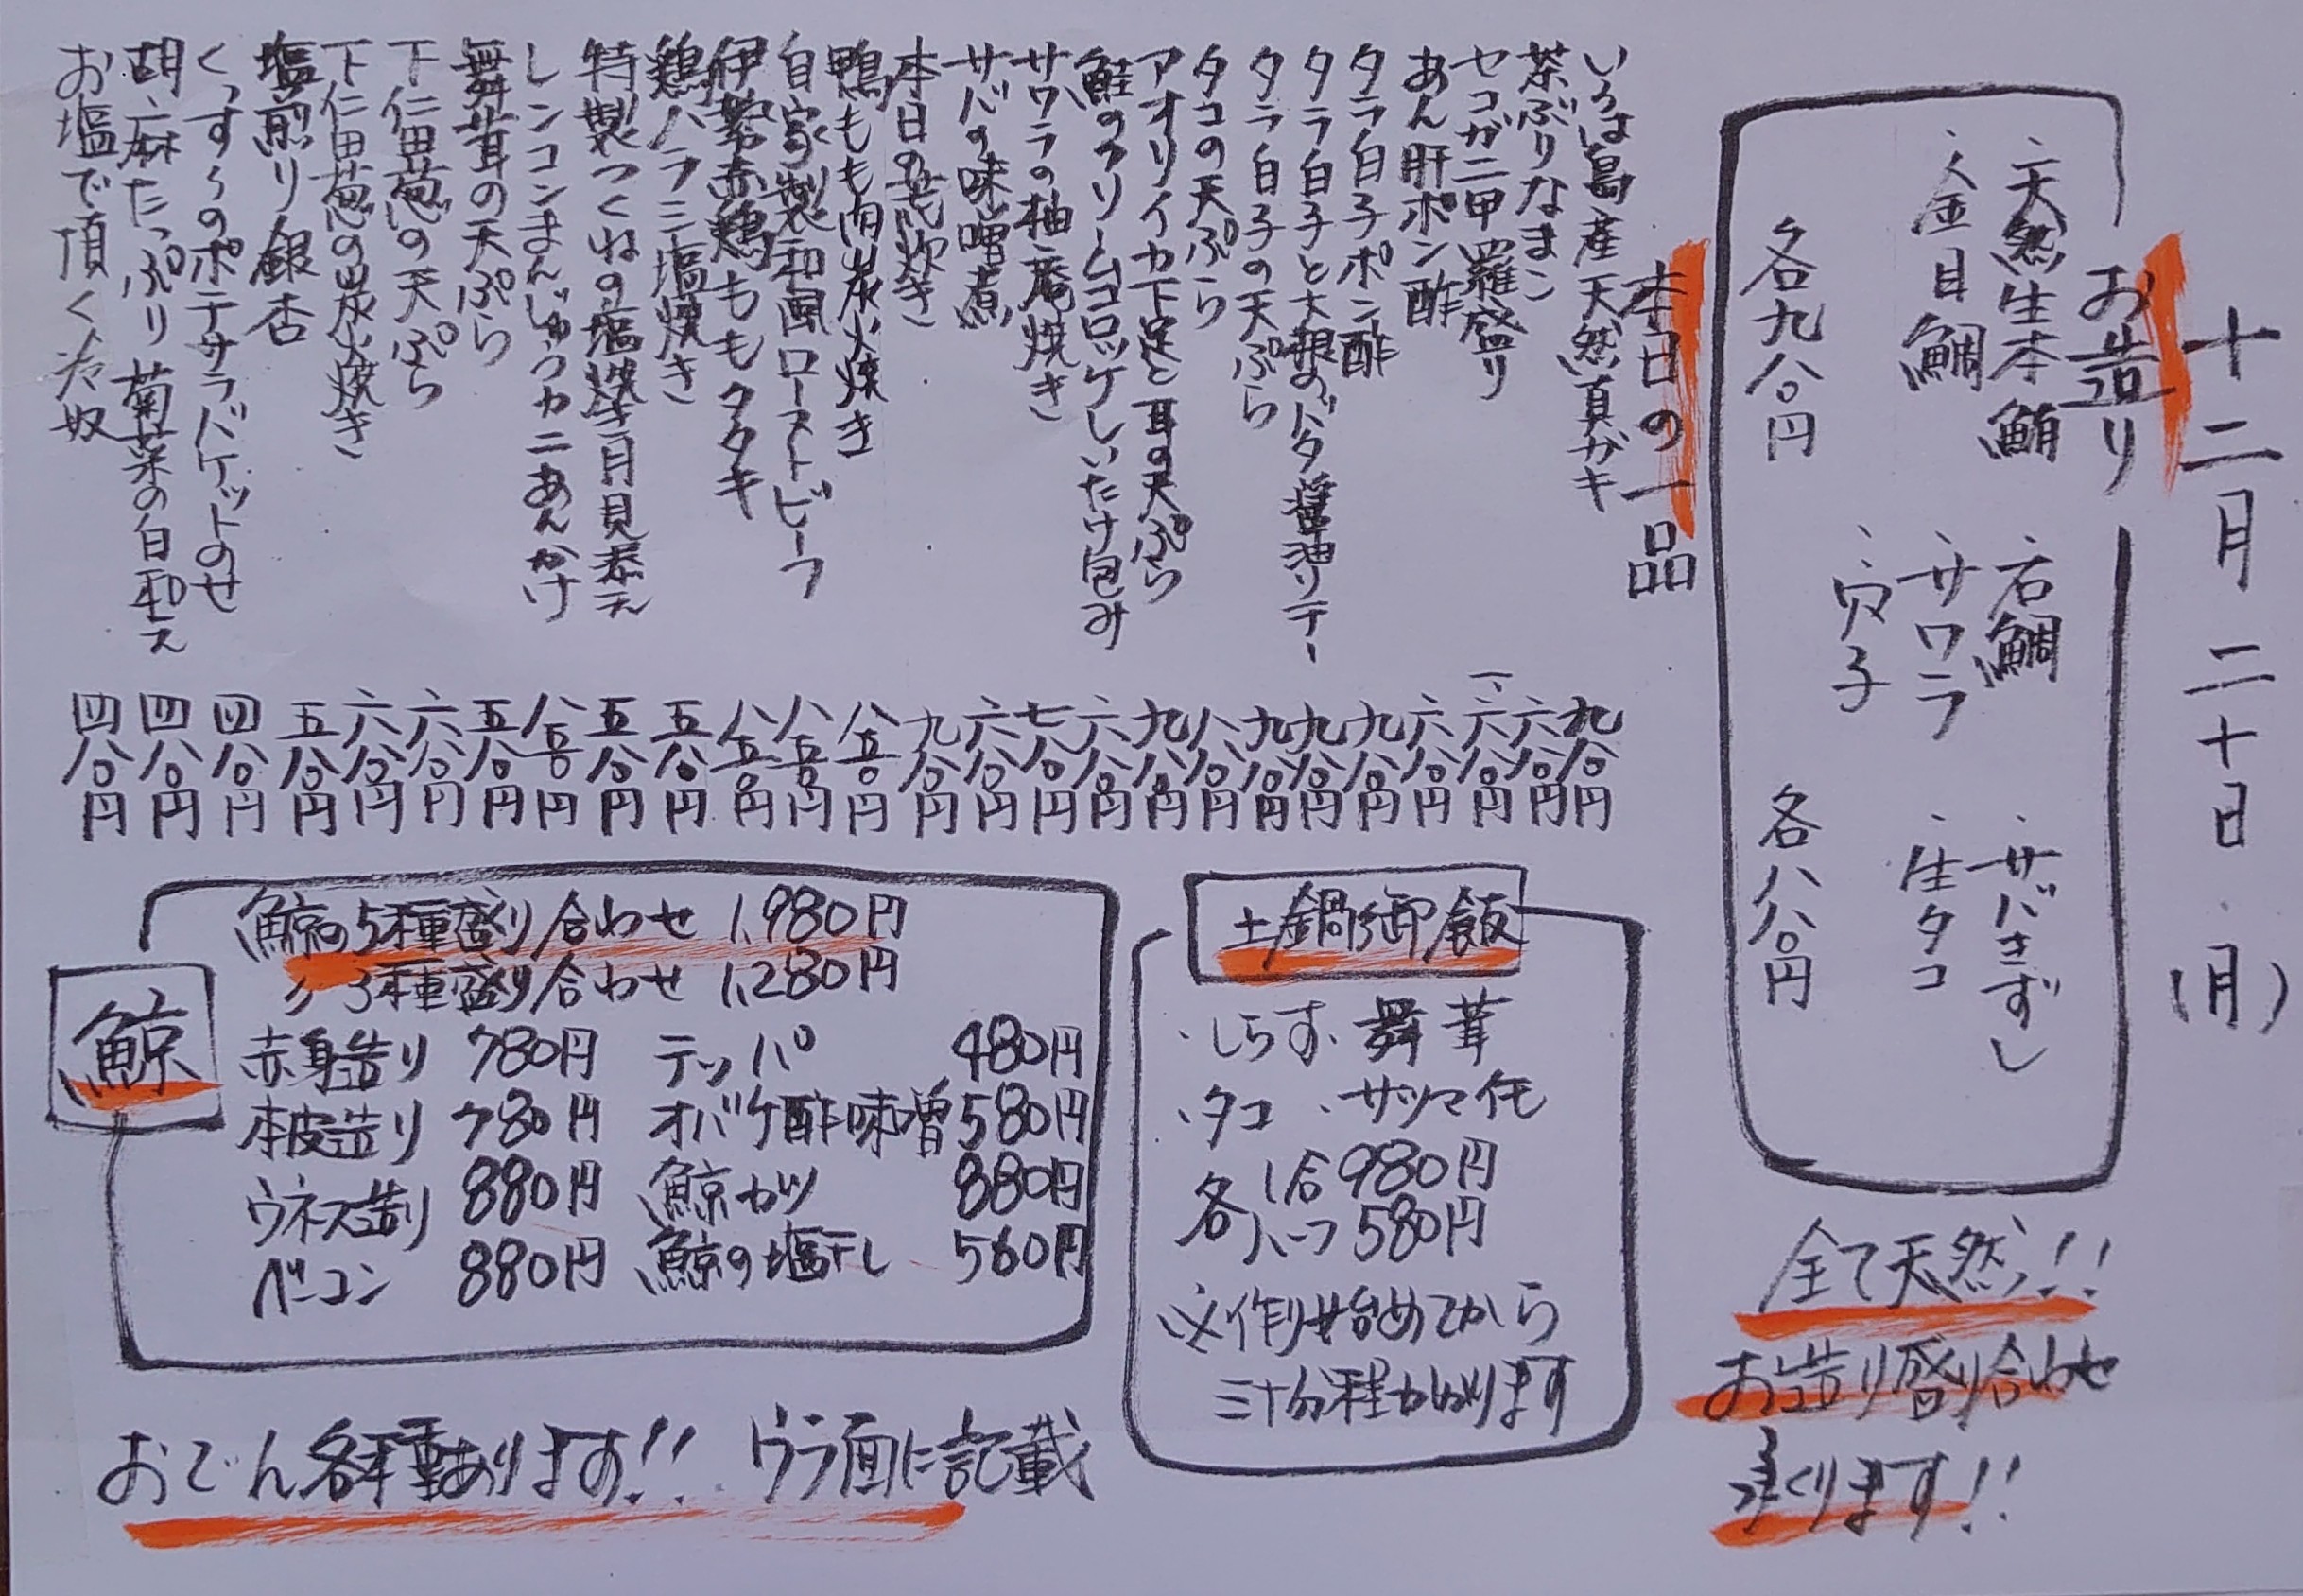 十二月二十日(月)
お造り
・天然生本鮪
・金目鯛
各九八〇円
・石鯛
・サワラ
・穴子
・サバきずし
・生タコ
各八八〇円
全て天然!!
お造り盛り合わせ
承ります!!
本日の一品
いろは島産天然真ガキ 九八〇円
茶ぶりなまこ 六八〇円
セコガニ甲羅盛り 一、六八〇円
あん肝ポン酢 六八〇円
タラ白子ポン酢 九八〇円
タラ白子と大根のバター醤油ソテー 九八〇円
タラ白子の天ぷら 九八〇円
タコの天ぷら 八八〇円
アオリイカ下足と耳の天ぷら 九八〇円
鮭のクリームコロッケしいたけ包み 六八〇円
サワラの柚庵焼き 七八〇円
サバの味噌煮 六八〇円
本日の荒炊き 九八〇円
鴨もも肉炭火焼き 八五〇円
自家製和風ローストビーフ 八五〇円
伊勢赤鶏ももタタキ 八五〇円
鶏ハラミ塩焼き 五八〇円
特製つくねの塩焼き月見添え 五八〇円
レンコンまんじゅうカニあんかけ 八五〇円
舞茸の天ぷら 五八〇円
下仁田葱の天ぷら 六八〇円
下仁田葱の炭火焼き 六八〇円
塩煎り銀杏 五八〇円
くっすんのポテサラバケットのせ 四八〇円
胡麻たっぷり菊菜の白和え 四八〇円
お塩で頂く冷奴 四八〇円
土鍋御飯
・しらす・舞茸
・タコ ・サツマイモ
各1合980円
各ハーフ580円
※作り始めてから
三十分程かかります
鯨
鯨の5種盛り合わせ 1,980円
〃3種盛り合わせ 1,280円
赤身造り 780円 テッパ 480円
本皮造り 780円 オバケ酢味噌 580円
ウネス造り 880円 鯨カツ 880円
ベーコン 880円 鯨の塩干し 560円
おでん各種あります!! ウラ面に記載